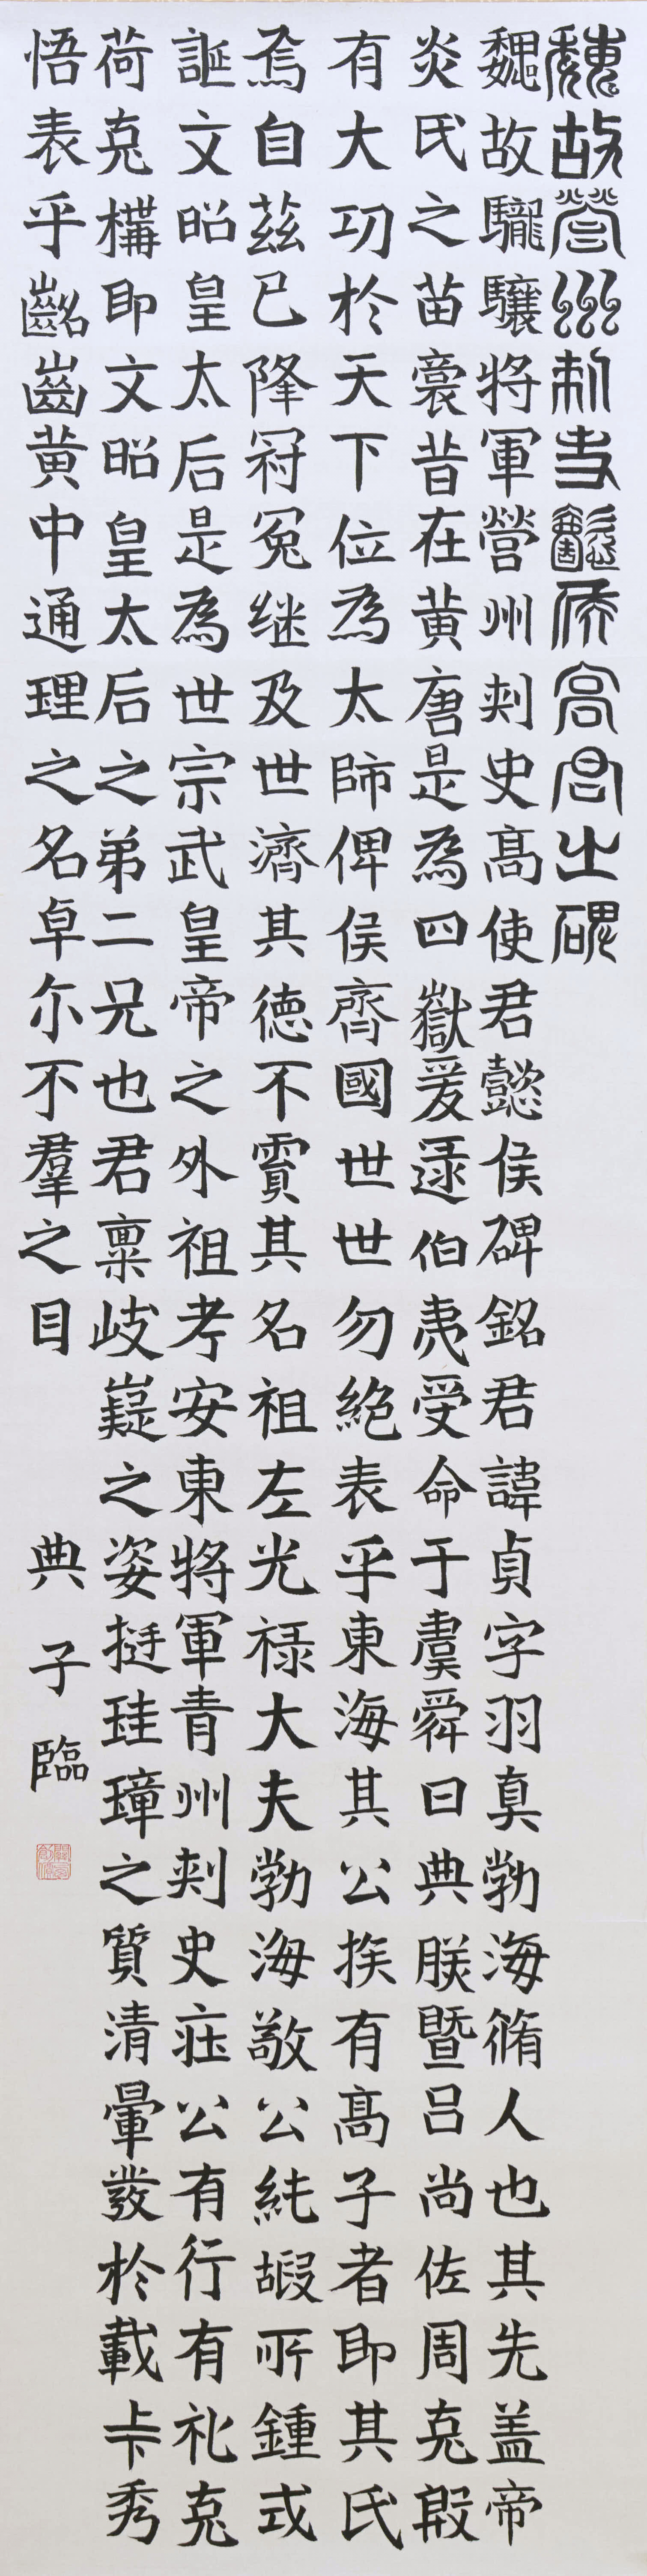 魏故營州刺史懿侯高君之碑
魏故驪驤將軍營州刺史髙使君懿侯碑銘君諱貞字羽真勃海脩人也其先盖帝
炎氏之苗裔昔在黄唐是為四嶽爰逯伯夷受命于虞舜曰典朕暨吕尚佐周克殷
有大功於天下位為太師俾侯齊國世世勿絶表乎東海其公族有髙子者即其氏
焉自茲已降冠冕继及世濟其德不霣其名祖左光禄大夫勃海敬公純嘏所鍾或
誕文昭皇太后是為世宗武皇帝之外祖考安東將軍青州刺史莊公有行有礼克
荷克構即文昭皇太后之弟二兄也君稟岐嶷之姿挺珪璋之質清暈發於載卡秀
悟表乎齠齒黄中通理之名卓尓不羣之目 典子臨